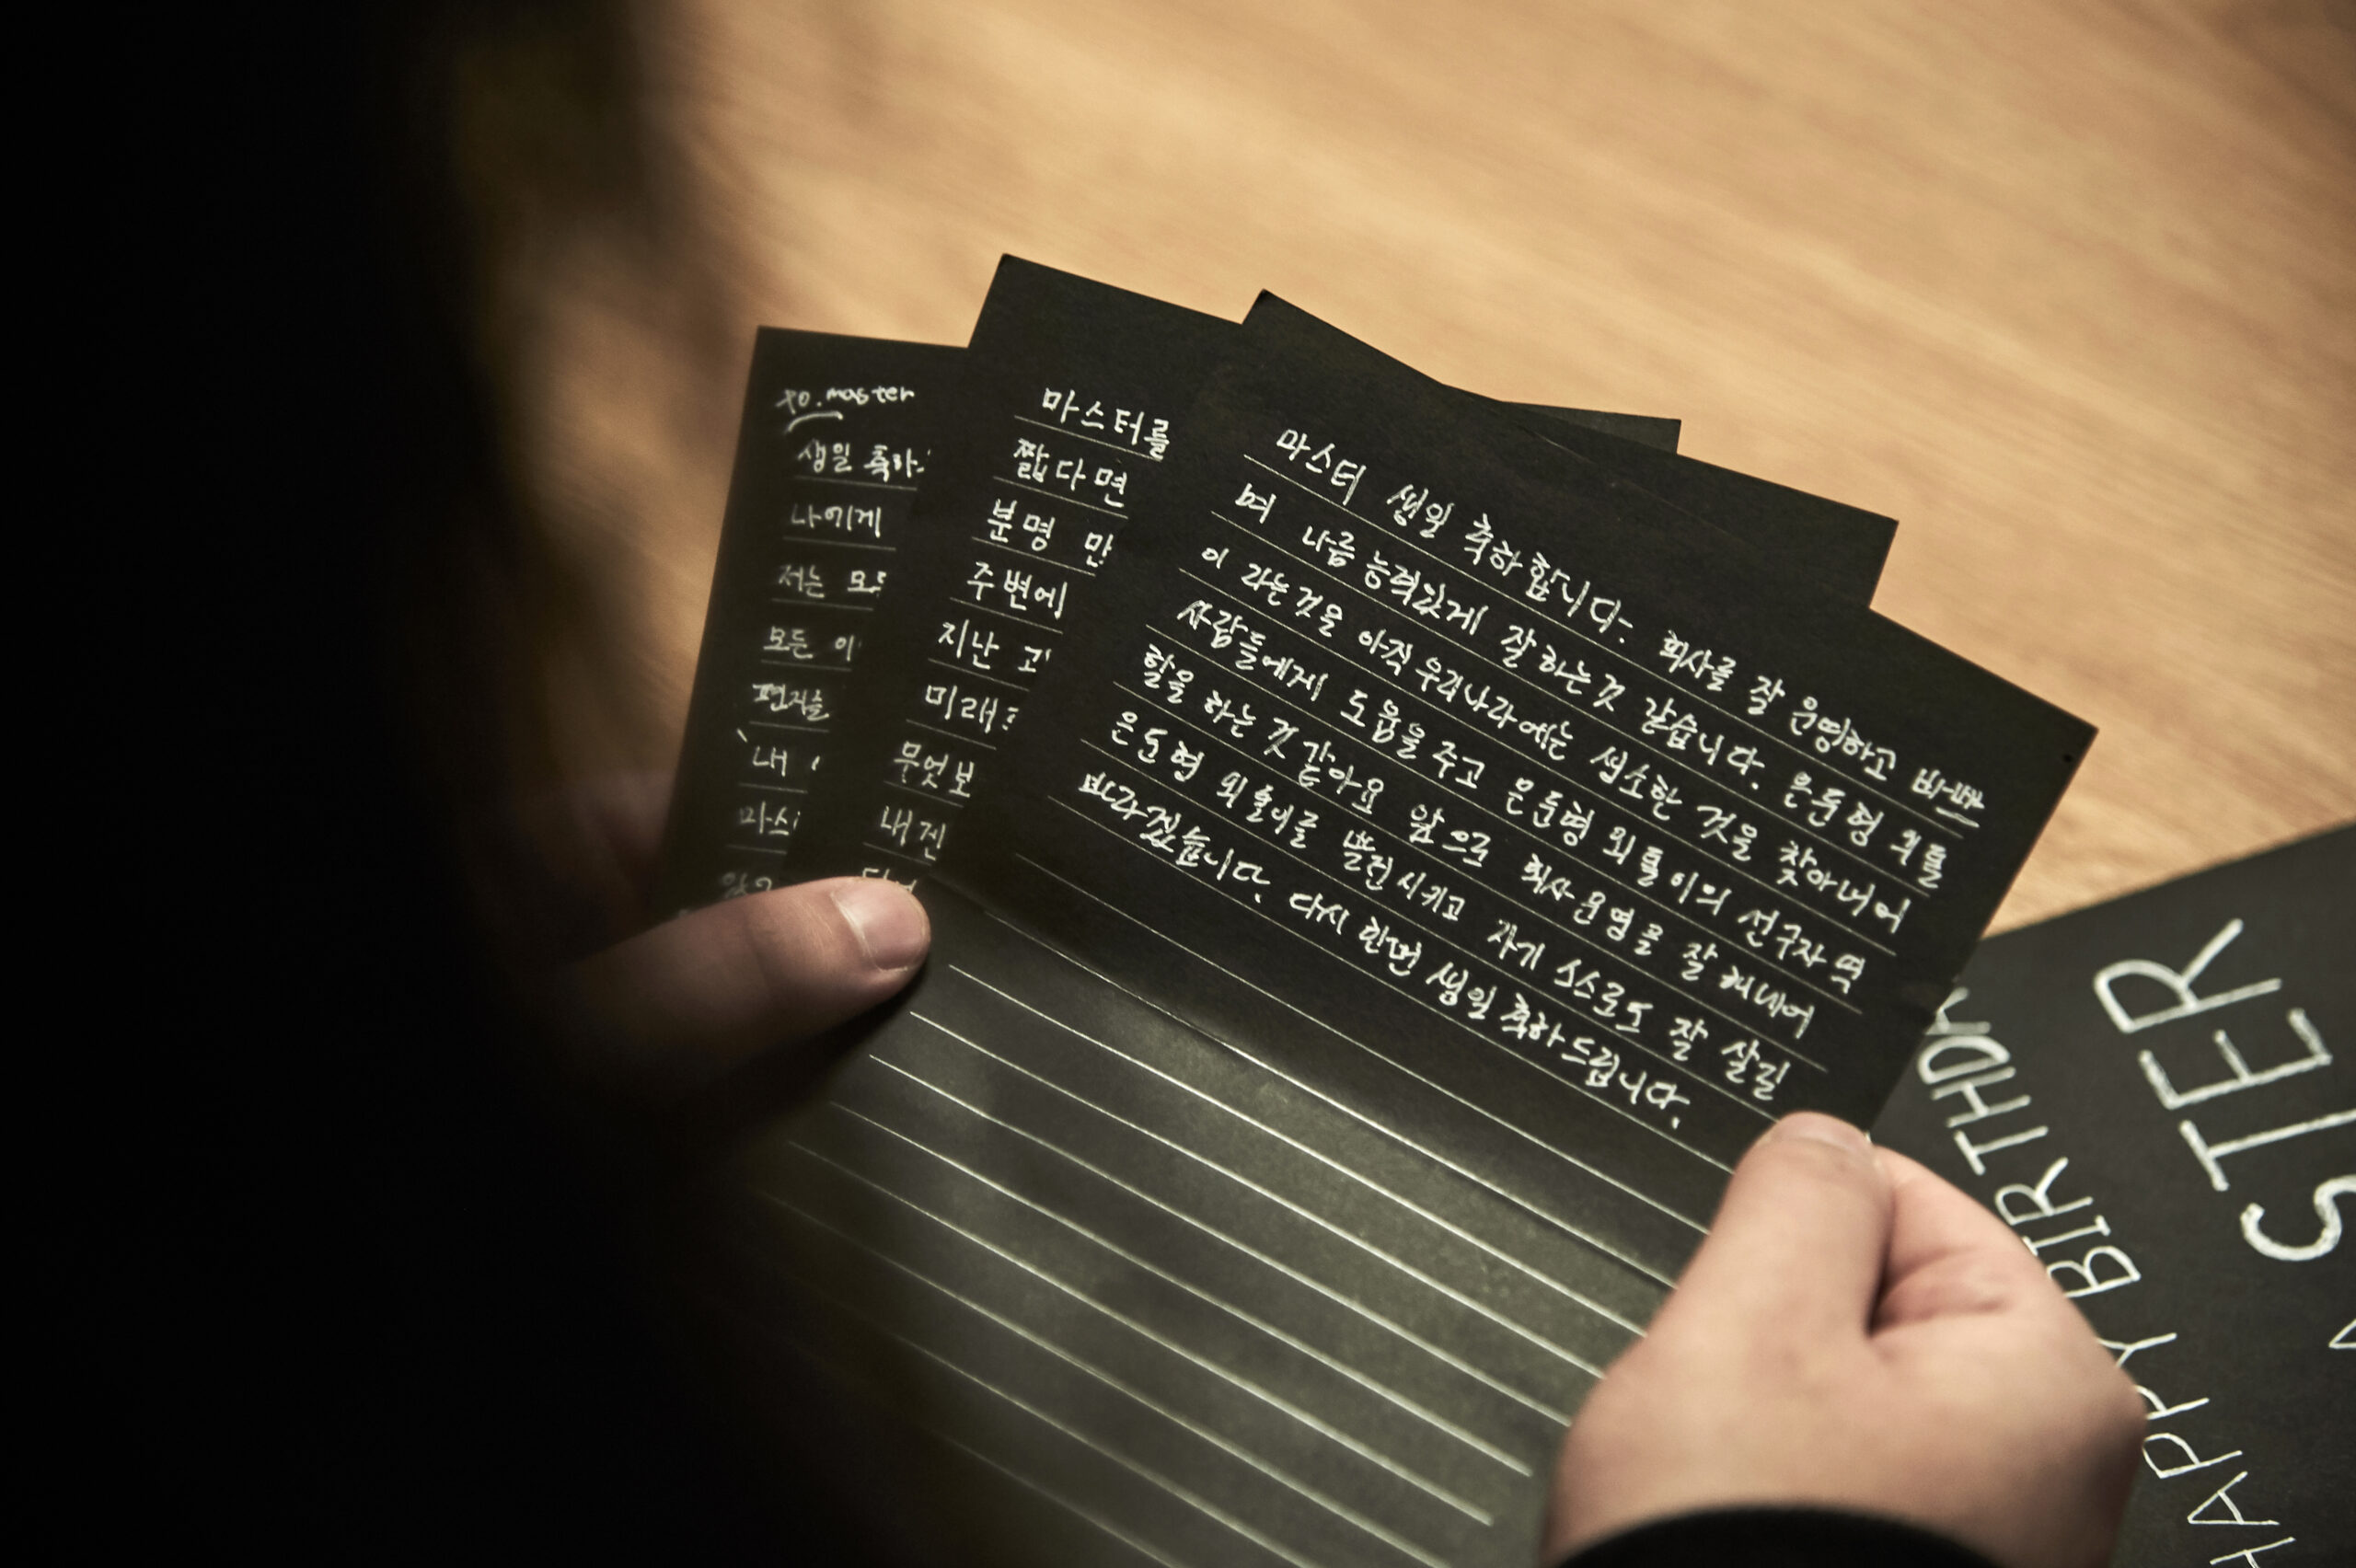 to. master
생일 축하
나에게
저는 모든
모든 이
편지를
내
마스
마스터를
짧다면
분명 만
주변에
지난 고
미래
무엇보
내 젠
마스터 생일 축하합니다. 회사를 잘 운영하고 바쁘
며 나름 능력있게 잘하는것 같습니다. 은둔형 외톨
이 라는것을 아직 우리나라에는 생소한 것을 찾아내어
사람들에게 도움을 주고 은둔형 외톨이의 선구자 역
할을 하는 것 같아요 앞으로 회사 운영을 잘 해내어
은도형 외톨이를 발전시키고 자기 스스로도 잘 살길
바라겠습니다. 다시 한번 생일 축하드립니다.
HAPPY BIRTHDA
STER